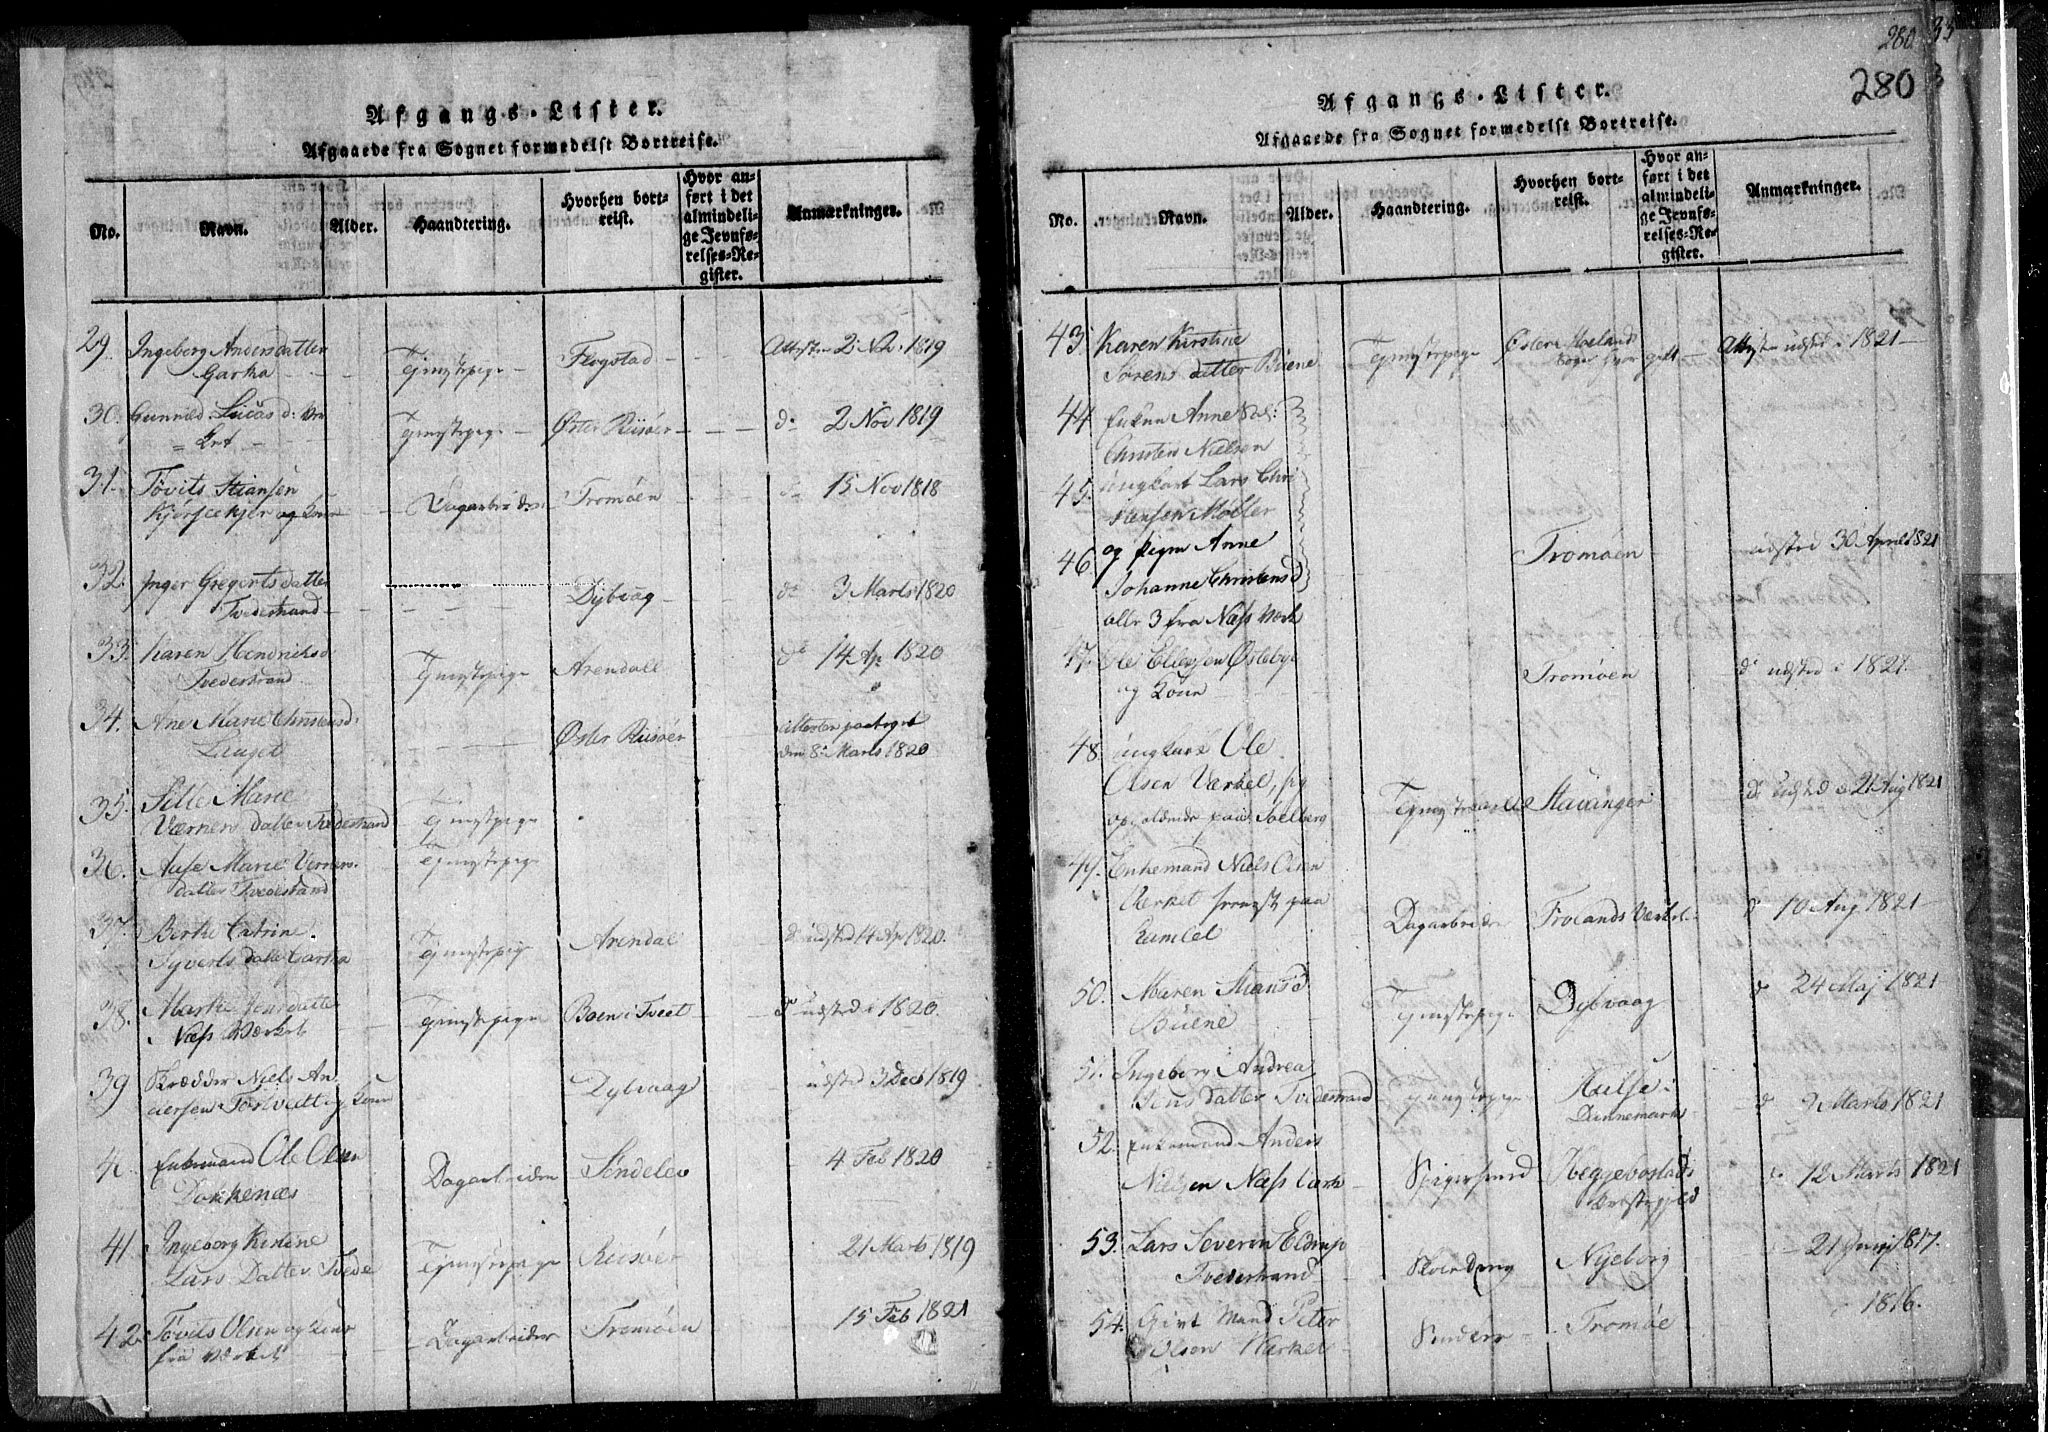 Afgangs-Lister.
Afgaaede fra Sognet formedelst Bortreise.
No. Navn. Alder. Haandtering. Hvorhen bortreist. Hvor anført i det almindelige Jevnførelses-Register. Anmærkninger.
29. Ingeborg Andersdatter Tjenestepige Flogstad Attesten 2 Nov 1819
Garta
30. Lucas d:
Tjenestepige Øster Riisøer do 2 Nov 1819
31. Tøvits Stiansen
og Kone Dagarbeider Tromøen do 15 Nov 1818
32. Inger Gregertsdatter
Tvedestrand Dybvaag do 3 Marts 1820
33. Karen Hendriksd
Tvedestrand Tjenestepige Arendall do 14 Ap 1820
34. Ane Marie Christensd:
Øster Riisøer Attesten paateget
den 8de Marts 1820
35. Sille Marie
Værnersdatter Tvedestrand Tjenestepige
36. Marie Verners
datter Tvedestrand Tjenestepige
37. Birthe Catrine
datter Garta Tjenestepige Arendal do udsted 14 Ap 1820.
38. Marthe Jensdatter
Næss Værket Tjenestepige Boen i Tveet do udsted i 1820.
39 Skrædder Niels An
dersen og Kone Dybvaag udsted 3 Dec 1819
4 Enkemand Ole Olsen
Dokkenæs Dagarbeider Søndelev 4 Feb 1820
41. Ingeborg Kirstine
Lars Datter Tvede Tjenestepige Riisøer 21 Marts 1819
42. Tøvits Olsen og Kone
fra Værket Dagarbeider Tromøen 15 Feb 1821
280
280
Afgangs-Lister.
Afgaaede fra Sognet formedelst Bortreise.
No. Navn. Alder. Haandtering. Hvorhen bortreist. Hvor anført i det almindelige Jevnførelses-Register. Anmærkninger.
43. Karen Kirstine
Sørensdatter Buene Tjenestepige Østere Moelands
Sogn hvor gift Attesten udsted i 1821
44 Enken Anne Sal:
Christen Nielsen
45. ungkarl Lars Chri
stensen Møller
46. og pigen Anne
Johanne Christensd
alle 3 fra Næss Værk Tromøen udsted 30 April 1821
47. Ole Ellevsen Østebye
og Kone Tromøen do udsted i 1821.
48. ungkarl Ole
Olsen Værket,
opholdende paa Solberg Stavanger do udsted d 21 Aug 1821
49. Enkemand Niels Olsen
Værket paa
Ramlet Dagarbeider Frolands Værket do 10 Aug 1821
50. Maren Stiansd
Buene Tjenestepige Dybvaag do 24 Maj 1821
51. Ingeborg Andrea
Jensdatter Tvedestrand Tjenestepige
Dannemark do 9 Marts 1821
52. Enkemand Anders
Nielsen Næss Værk Spigersmed Heggebostads
Præstegjeld do 12 Marts 1821
53. Lars Severin Eldrup
Tvedestrand Nyeborg 21 Juny 1817.
54. Givt Mand Peter
Olsen Værket Tromøe 1816.